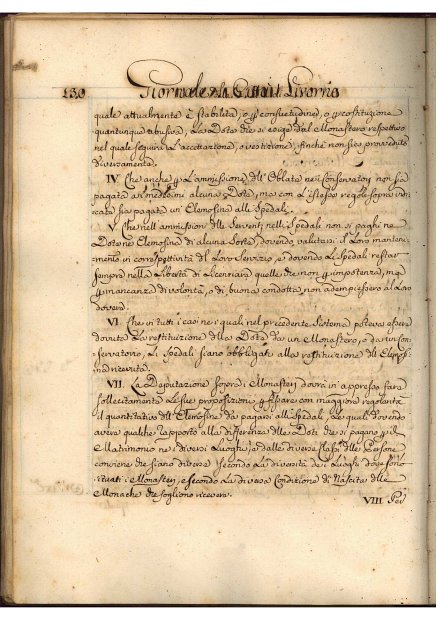 230 Giornale della Città di Livorno
quale attualmente è stabilita, o p consuetudine, o p costituzione
quantunque abusiva, La Dote che si esige dal Monastero respettivo
nel quale seguirà L'accettazione, o vestizione, finché non sia provveduto
diversamente.
IV. Che anche p L'ammissione dll' Oblate nei Conservatorj non sia
pagata ai medesimi alcuna Dote, ma con L'istesse regole sopra indi-
cate sia pagata un' Elemosina alli Spedali.
V. Che nell' ammissioni dlle Serventi nelli Spedali non si paghi ne
Dote ne Elemosina di alcuna Sorte, dovendo valutarsi il Loro manteni-
mento in correspettività dl Loro Servizio, e dovendo Li Spedali restar
sempre nella Libertà di Licenziare quelle che non p impotenza, ma
p mancanza di volontà, o di buona condotta non adempiessero al Loro
dovere.
VI. Che in tutti i casi nei quali nel precedente Sistema poteva essere
dovuta La restituzione dlla Dote da un Monastero, o da un Con-
servatorio, Li Spedali siano obbligati alla restituzione dll' Elemosi-
na ricevuta.
VII. La Deputazione sopra i Monasterj dovrà in appresso fare
sollecitamente Le sue proposizioni p fissare con maggiore regolarità
il quantitativo dll' Elemosine da pagarsi alli Spedali, Le quali dovendo
avere qualche rapporto alla differenza dlle Doti che si pagano p il
Matrimonio nei diversi Luoghi, e dalle diverse classi dlle Persone
conviene che siano diverse secondo La diversità dei Luoghi dove sono
situati i Monasterj, e secondo La diversa Condizione di Nascita dlle
Monache che sogliono ricevere.
VIII Per